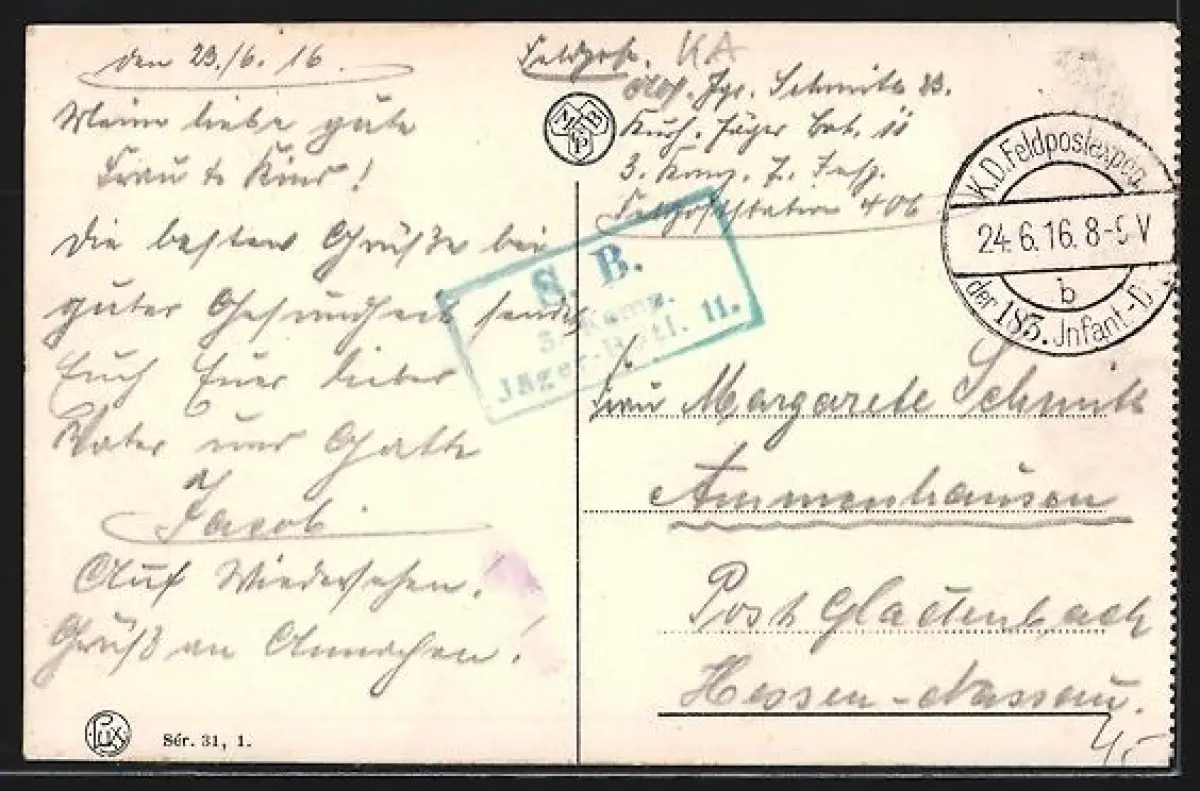 den 23./6. 16.
Meine liebe gute
Frau & Kind!
Die besten Grüße bei
guter Gesundheit sendet
Euch Euer lieber
Vater und Gatte
Jacob.
Auf Wiedersehen!
Gruß an Annachen!
Lux
Sér. 31, 1.
Feldpost. KA
Jgr. Schmitt
Jäger Bat. 11
3. Komp.
Feldpoststation 406
S. B.
3. Komp.
Jäger-Batl. 11.
K.D. Feldpostexped.
24.6.16. 8-9 V
b
der 183. Infant.-D
Frau Margarete Schmitt
Ammenhausen
Post Gladenbach
Hessen-Nassau.